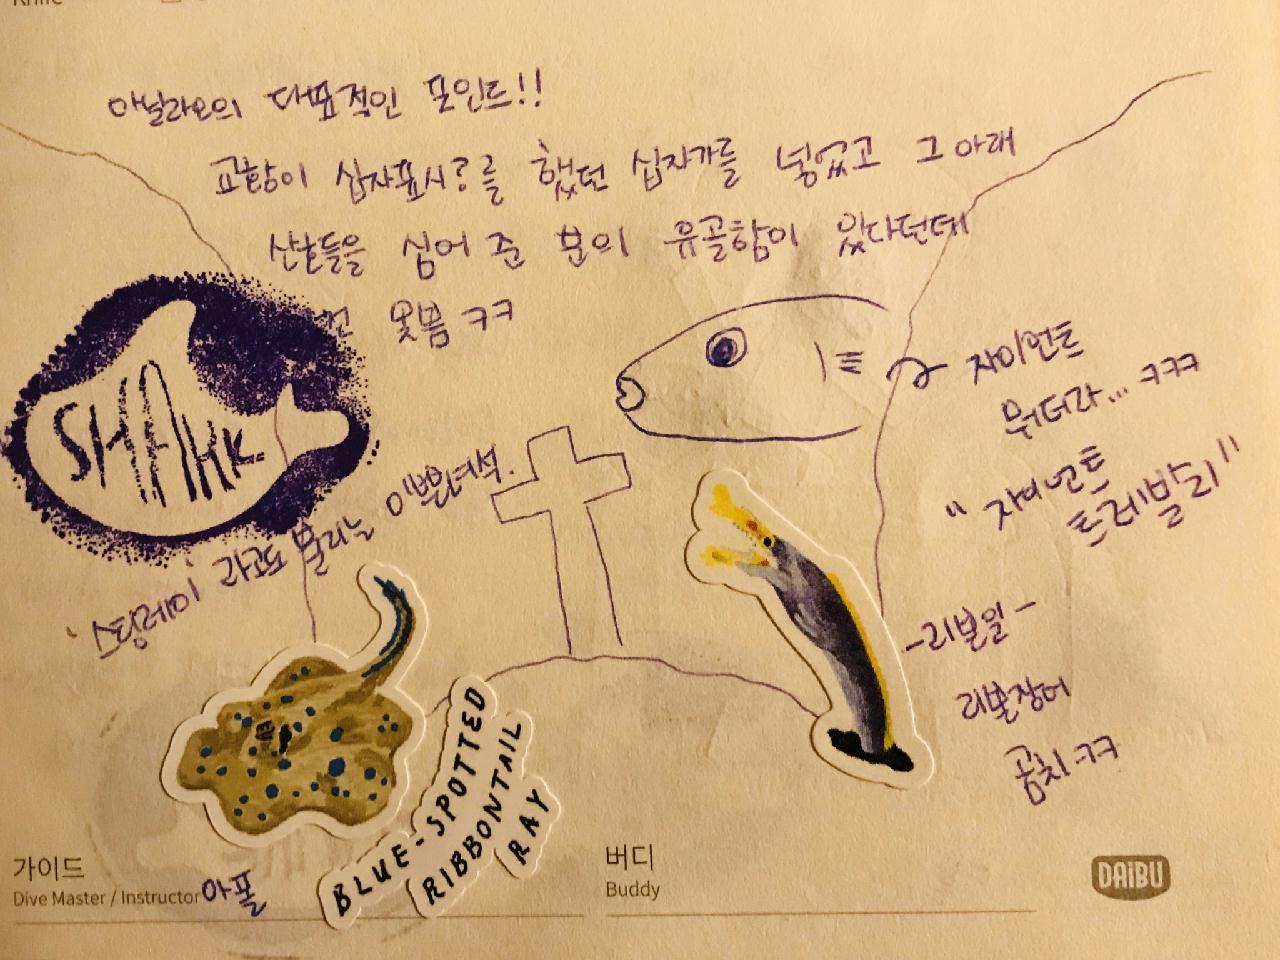 아닐라오의 대표적인 포인트!!
교황이 십자표시?를 했던 십자가를 넣었고 그 아래
산호들을 심어 준 분의 유골함이 있다던데
못봄 ㅋㅋ
SHARK
자이언트
뭐더라... ㅋㅋㅋ
"자이언트
트레발리"
'스팅레이' 라고도 불리는 이쁜녀석.
-리본일-
리본장어
곰치 ㅋㅋ
BLUE-SPOTTED
RIBBONTAIL
RAY
가이드
Dive Master / Instructor 아폴
버디
Buddy
DAIBU